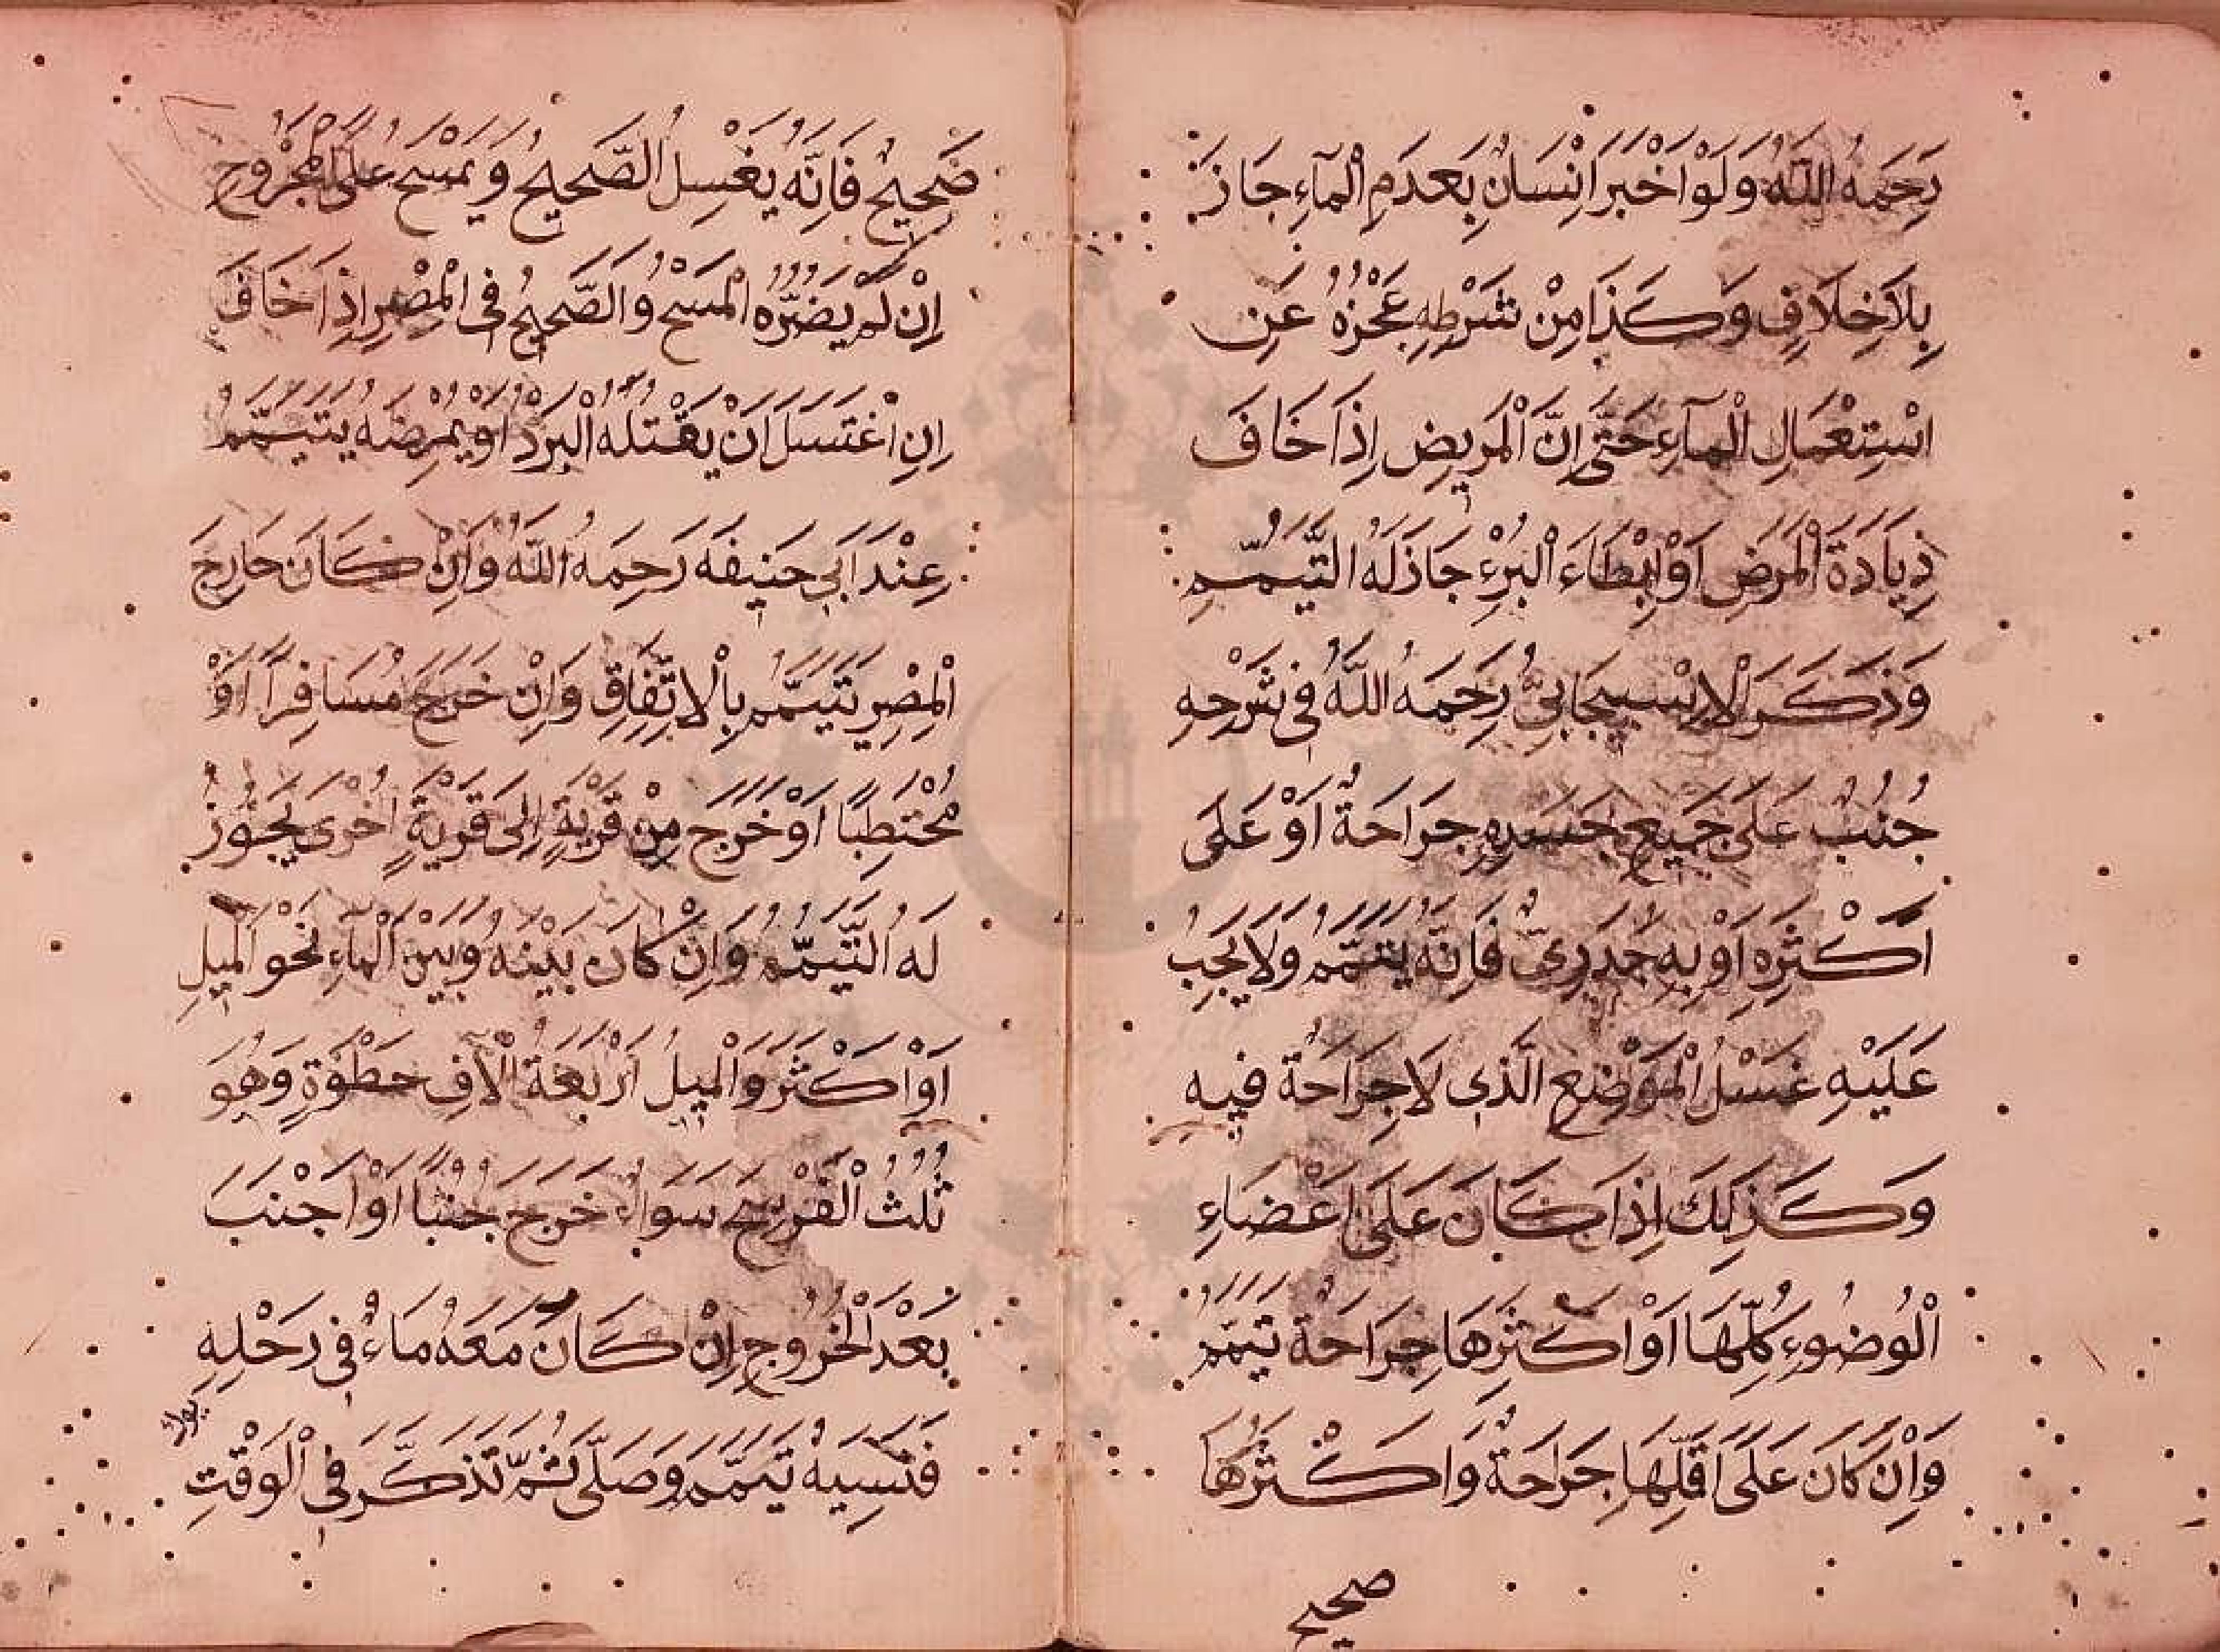 رَحِمَهُ اللّٰهُ وَلَوْ اَخْبَرَ اِنْسَانٌ بِعَدَمِ الْمَآءِ جَازَ
بِلَا خِلَافٍ وَكَذَا مِنْ شَرْطِهِ عَجْزُهُ عَنِ
اسْتِعْمَالِ الْمَآءِ حَتَّى اِنَّ الْمَرِيضَ اِذَا خَافَ
زِيَادَةَ الْمَرَضِ اَوْ اِبْطَاءَ الْبُرْءِ جَازَ لَهُ التَّيَمُّمُ
وَذَكَرَ الْاِسْبِيجَابِيُّ رَحِمَهُ اللّٰهُ فِى شَرْحِهِ
جُنُبٌ عَلَى جَمِيعِ جَسَدِهِ جِرَاحَةٌ اَوْ عَلَى
اَكْثَرِهِ اَوْ بِهِ جُدَرِىٌّ فَاِنَّهُ يَتَيَمَّمُ وَلَا يَجِبُ
عَلَيْهِ غَسْلُ الْمَوْضِعِ الَّذِى لَا جِرَاحَةَ فِيهِ
وَكَذٰلِكَ اِذَا كَانَ عَلَى اَعْضَاءِ
الْوُضُوءِ كُلِّهَا اَوْ اَكْثَرِهَا جِرَاحَةٌ تَيَمَّمُ
وَاِنْ كَانَ عَلَى اَقَلِّهَا جِرَاحَةٌ وَاَكْثَرُهَا
صحيح
صَحِيحٌ فَاِنَّهُ يَغْسِلُ الصَّحِيحَ وَيَمْسَحُ عَلَى الْمَجْرُوحِ
اِنْ لَمْ يَضُرَّهُ الْمَسْحُ وَالصَّحِيحُ فِى الْمِصْرِ اِذَا خَافَ
اِنِ اغْتَسَلَ اَنْ يَقْتُلَهُ الْبَرْدُ اَوْ يُمْرِضَهُ يَتَيَمَّمُ
عِنْدَ اَبِى حَنِيفَهَ رَحِمَهُ اللّٰهُ وَاِنْ كَانَ خَارِجَ
الْمِصْرِ يَتَيَمَّمُ بِالْاِتِّفَاقِ وَاِنْ خَرَجَ مُسَافِرًا اَوْ
مُحْتَطِبًا اَوْ خَرَجَ مِنْ قَرْيَةٍ اِلَى قَرْيَةٍ اُخْرَى يَجُوزُ
لَهُ التَّيَمُّمُ وَاِنْ كَانَ بَيْنَهُ وَبَيْنَ الْمَآءِ نَحْوَ الْمِيلِ
اَوْ اَكْثَرَ وَالْمِيلُ اَرْبَعَةُ اٰلَافِ خَطْوَةٍ وَهُوَ
ثُلُثُ الْفَرْسَخِ سَوَاءٌ خَرَجَ جُنُبًا اَوْ اَجْنَبَ
بَعْدَ الْخُرُوجِ اِنْ كَانَ مَعَهُ مَاءٌ فِى رَحْلِهِ
فَنَسِيَهُ تَيَمَّمَ وَصَلَّى ثُمَّ تَذَكَّرَ فِى الْوَقْتِ